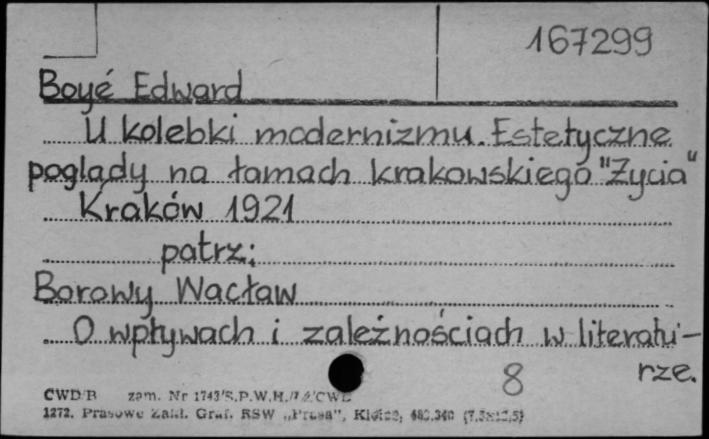 167299
Boyé Edward
U kolebki modernizmu. Estetyczne
poglądy na łamach krakowskiego "Życia"
Kraków 1921
patrz:
Borowy Wacław
O wpływach i zależnościach w literatu-
rze.
8
CWD/B zam. Nr
1272. Prasowe Zakł. Graf. RSW „Prasa",